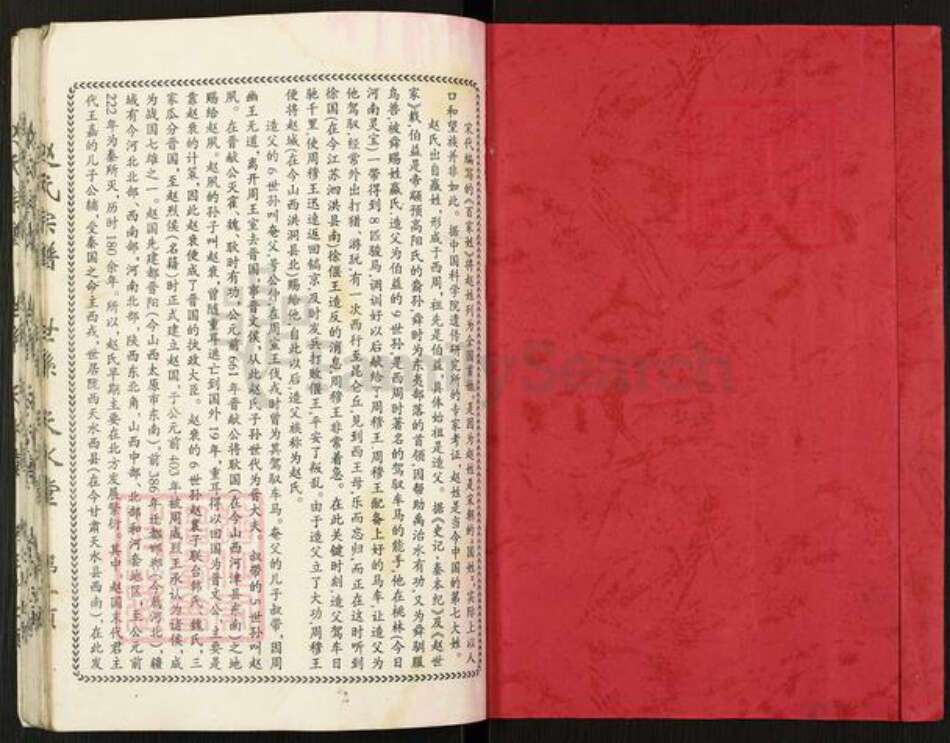 宋代编写的《百家姓》将赵姓列为全国首姓,是因为赵姓是宋朝的“国姓”,实际上以人
口和望族并非如此。据中国科学院遗传研究所的专家考证,赵姓是当今中国的第七大姓。
赵氏出自嬴姓,形成于西周,祖先是伯益,具体始祖是造父。据《史记·秦本纪》及《赵世
家》载,伯益是帝颛顼高阳氏的裔孙,舜时为东夷部落的首领,因帮助禹治水有功,又为舜驯服
鸟兽,被舜赐姓嬴氏,造父为伯益的9世孙,是西周时著名的驾驭车马的能手,他在桃林(今日
河南灵宝)一带得到8匹骏马,调训好以后献给了周穆王,周穆王配备上好的马车,让造父为
他驾驭,经常外出打猎、游玩,有一次西行至昆仑丘,见到西王母,乐而忘归,而正在这时听到
徐国(在今江苏泗洪县南)徐偃王造反的消息,周穆王非常着急。在此关键时刻,造父驾车日
驰千里,使周穆王迅速返回镐京,及时发兵打败偃王,平安了叛乱。由于造父立了大功,周穆王
便将赵城(在今山西洪洞县北)赐给他,自此以后,造父族称为赵氏。
造父的6世孙叫奄父,号公仲,在周宣王伐戎时曾为其驾驭车马。奄父的儿子叔带,因周
幽王无道,离开周王室去晋国,事晋文侯,从此赵氏子孙世代为晋大夫。叔带的5世孙叫赵
夙。在晋献公灭霍、魏、耿时有功,公元前661年晋献公将耿国(在今山西河津县东南)之地
赐给赵夙。赵夙的孙子叫赵衰,曾随重耳逃亡到国外19年,重耳得以回国为晋文公,主要是
靠赵衰的计策,因此赵衰便成了晋国的执政大臣。赵衰的6世孙赵襄子联合韩氏、魏氏,三
家瓜分晋国,至赵烈侯(名籍)时正式建立赵国,于公元前403年被周威烈王承认为诸侯,成
为战国七雄之一。赵国先建都晋阳(今山西太原市东南),前386年迁都邯郸(今属河北),疆
域有今河北北部、西南部,河南北部,陕西东北角,山西中部、北部和河套地区,至公元前
222年为秦所灭,历时180余年。所以,赵氏早期主要在北方发展繁衍。其中,赵国末代君主
代王嘉的儿子公辅,受秦国之命主西戎,世居陇西天水西县(在今甘肃天水县西南),在此发
赵氏宗谱 世系 天水堂
FamilySearch